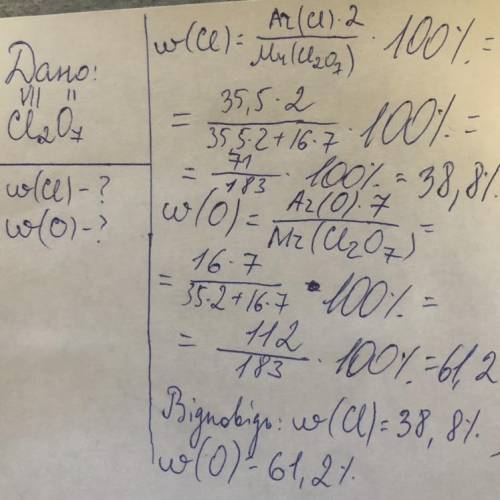 Дано:
VII II
Cl₂O₇
w(Cl) - ?
w(O) - ?
w(Cl) = Ar(Cl)·2 / Mr(Cl₂O₇) · 100% =
= 35,5·2 / 35,5·2+16·7 · 100% =
= 71 / 183 · 100% = 38,8%
w(O) = Ar(O)·7 / Mr(Cl₂O₇) =
= 16·7 / 35·2+16·7 · 100% =
= 112 / 183 · 100% = 61,2
Відповідь: w(Cl) = 38,8%
w(O) - 61,2%.